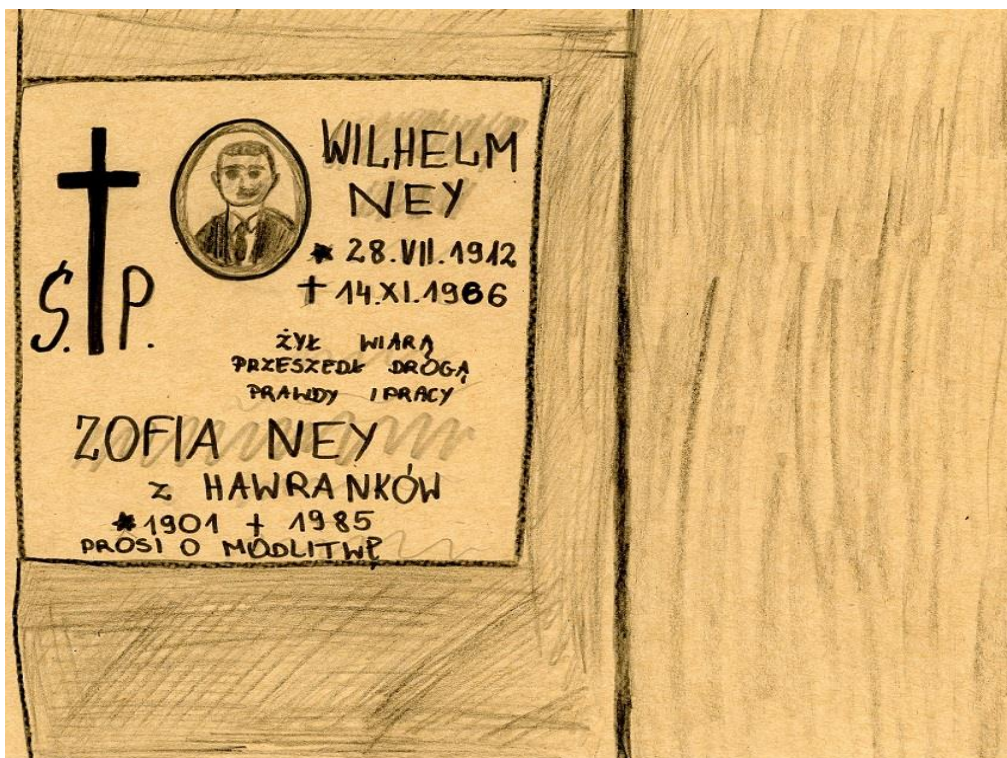 Ś. P.
WILHELM
NEY
* 28.VII.1912
† 14.XI.1966
ŻYŁ WIARĄ
PRZESZEDŁ DROGĄ
PRAWDY I PRACY
ZOFIA NEY
z HAWRANKÓW
* 1901 † 1985
PROSI O MODLITWĘ